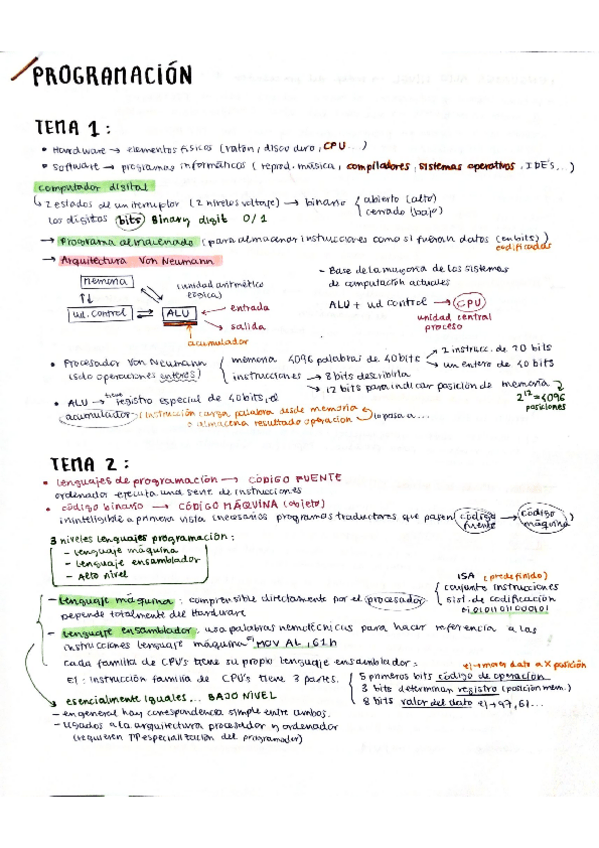 PROGRAMACIÓN
TEMA 1:
• Hardware → elementos físicos (ratón, disco duro, CPU...)
• Software → programas informáticos (reprod. música, compiladores, sistemas operativos, IDE's,..)
computador digital
↳ 2 estados de un iterruptor (2 niveles voltaje) → binario { abierto (alto)
cerrado (bajo)
los dígitos (bits) Binary digit 0/1
→ Programa almacenado (para almacenar instrucciones como si fueran datos (en bits))
codificadas
→ Arquitectura Von Neumann
- Base de la mayoría de los sistemas
de computación actuales
memoria
(unidad aritmético
lógica)
ud. control
ALU
→ entrada
→ salida
acumulador
ALU + ud control → CPU
unidad central
proceso
• Procesador Von Neumann
(solo operaciones enteros)
memoria 4096 palabras de 40 bits
→ 2 instrucc. de 20 bits
→ un entero de 40 bits
instrucciones → 8 bits describirla
→ 12 bits para indicar posición de memoria
2^12 = 4096
posiciones
• ALU → tiene registro especial de 40 bits, el
acumulador (instrucción carga palabra desde memoria
o almacena resultado operación
lo pasa a...
TEMA 2:
• lenguajes de programación → CÓDIGO FUENTE
ordenador ejecuta una serie de instrucciones
• código binario → CÓDIGO MÁQUINA (objeto)
ininteligible a primera vista (necesarios programas traductores que pasen código fuente → código máquina)
3 niveles lenguajes programación:
- lenguaje máquina
- lenguaje ensamblador
- Alto nivel
ISA (predefinido)
conjunto instrucciones
sist. de codificación
- Lenguaje máquina: comprensible directamente por el procesador
Depende totalmente del Hardware
ej. 0101011000101
- Lenguaje ensamblador: usa palabras nemotécnicas para hacer referencia a las
instrucciones lenguaje máquina ej MOV AL, 61h
ej → mover dato a X posición
cada familia de CPU's tiene su propio lenguaje ensamblador:
EJ: Instrucción familia de CPU's tiene 3 partes.
5 primeros bits código de operación
3 bits determinan registro (posición mem.)
8 bits valor del dato ej → 97, 61...
esencialmente iguales,... BAJO NIVEL
- en general hay correspondencia simple entre ambos.
- ligados a la arquitectura procesador y ordenador
(requieren especialización del programador)